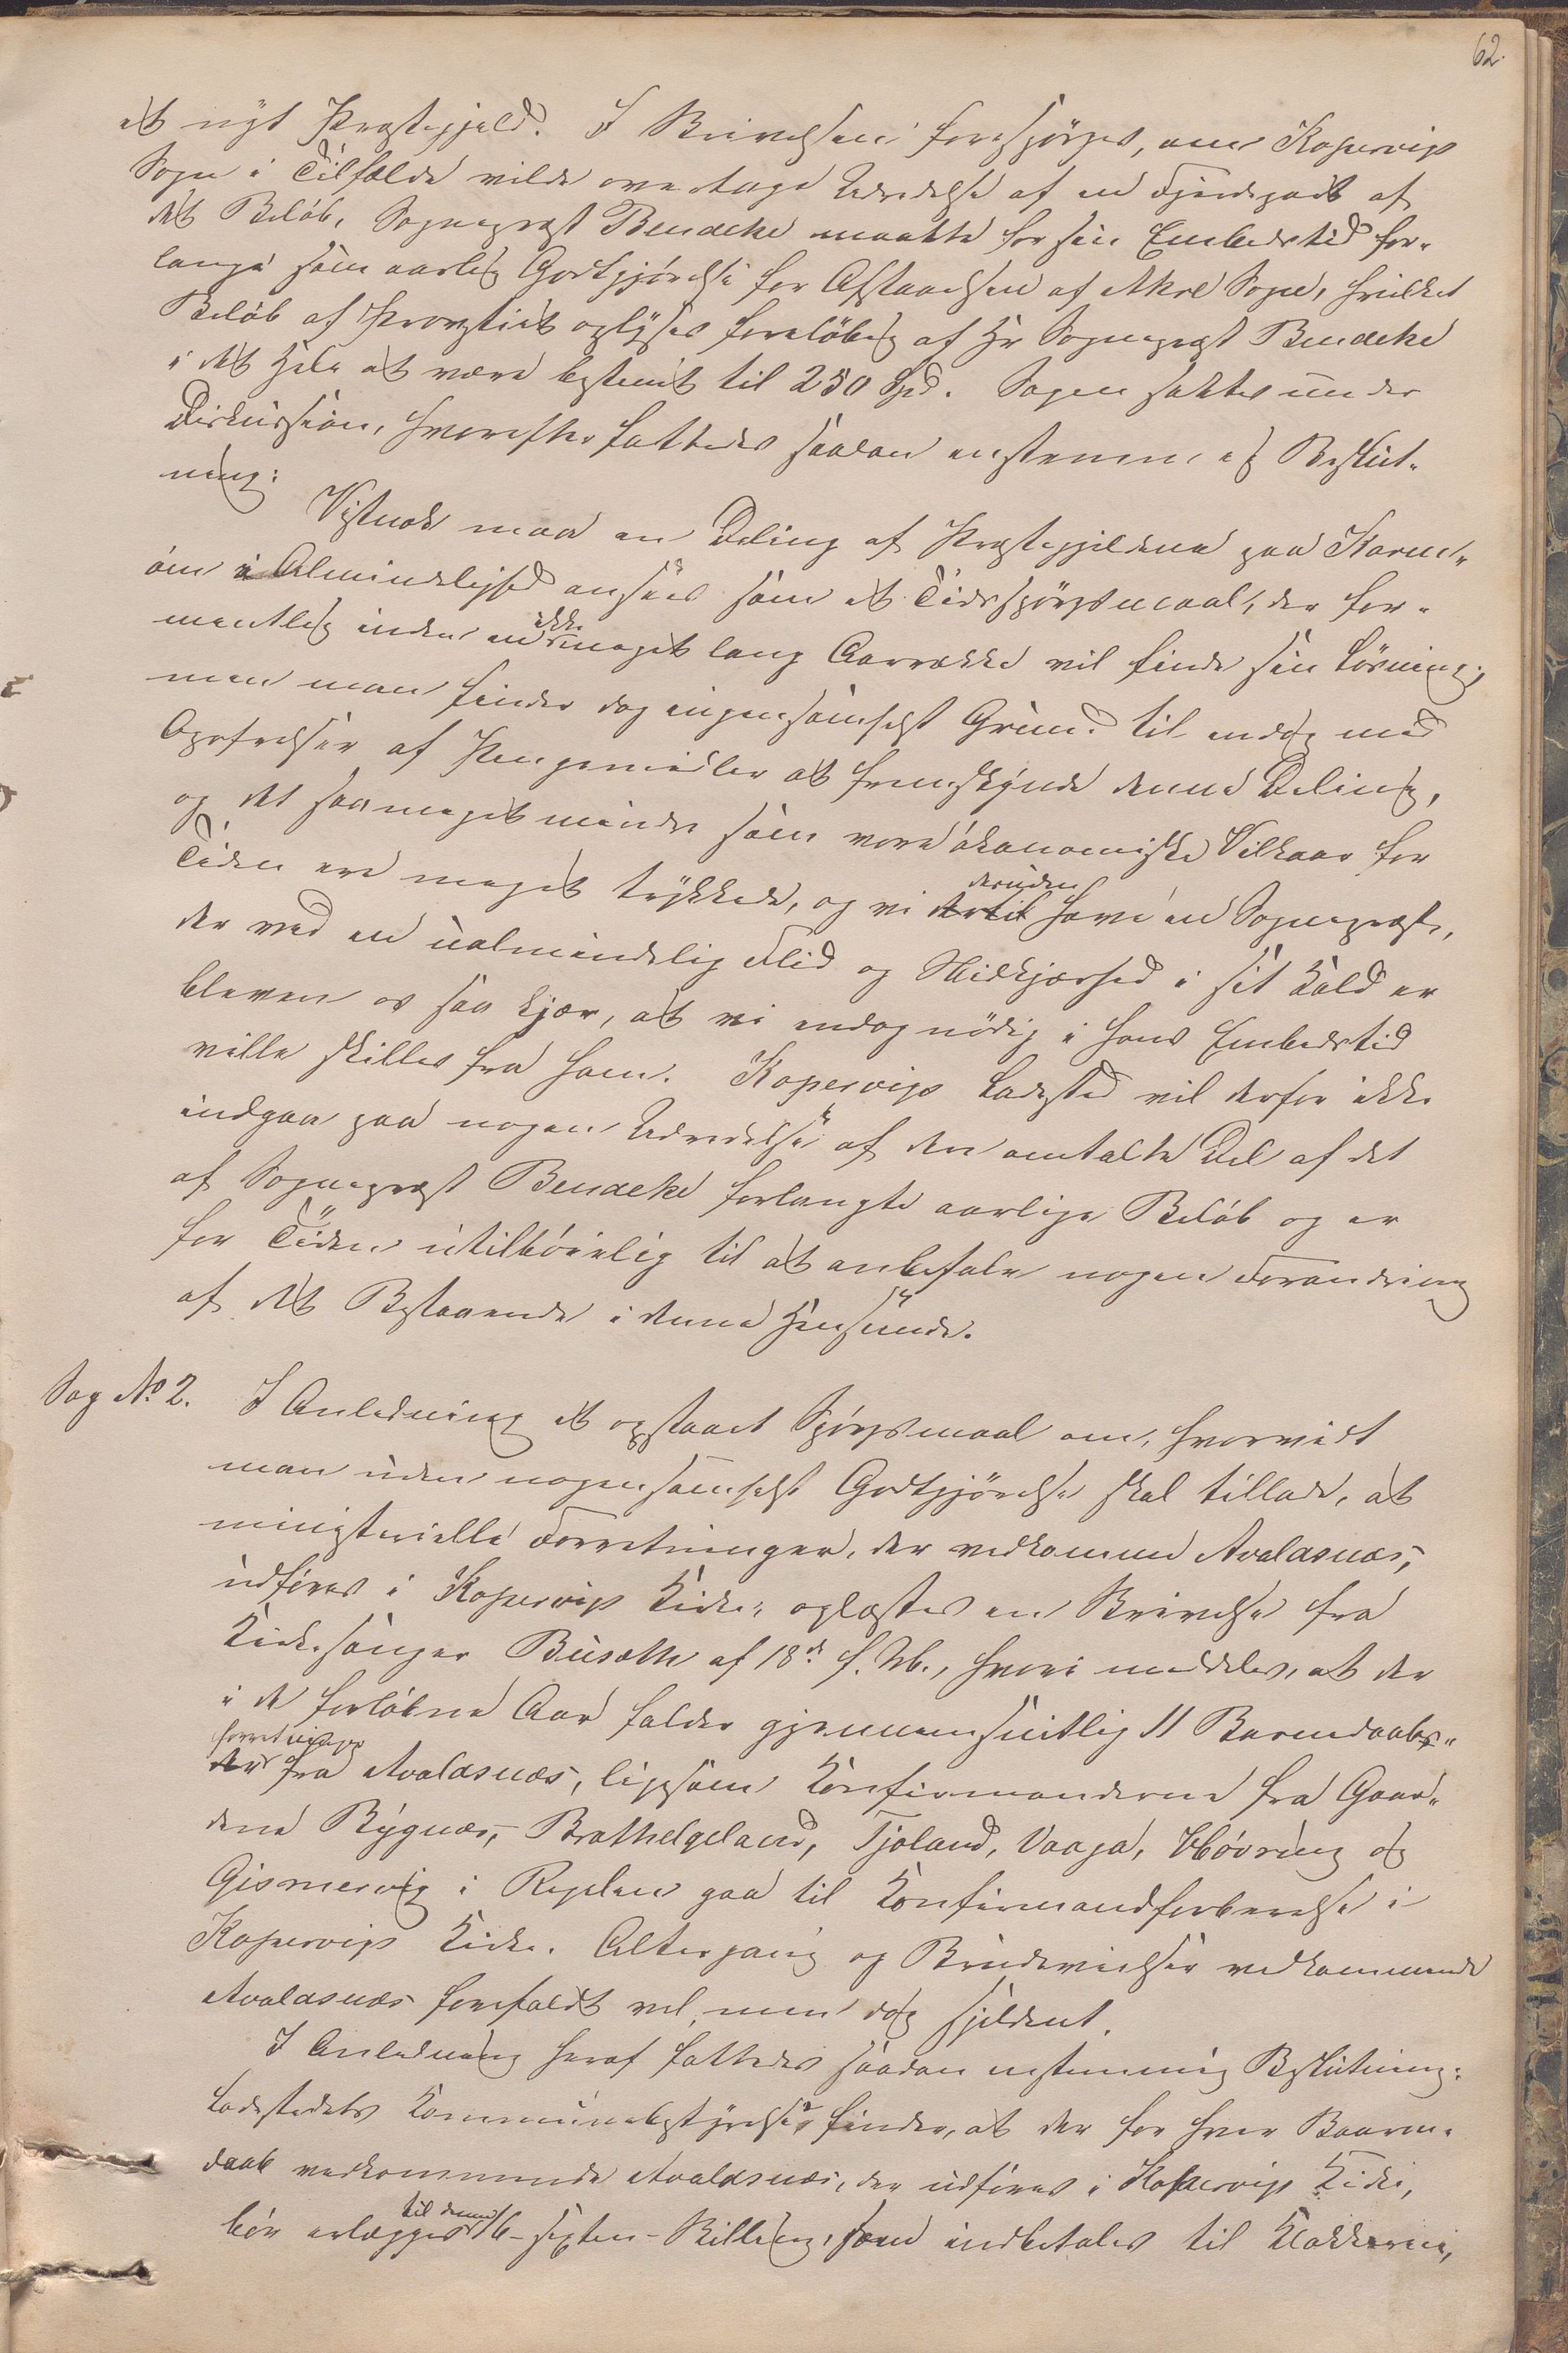 62.
et nyt Præstegjæld. I Skrivelsen forespørges, om Kopervigs
Sogn i Tilfælde vilde overtage Udredelse af en Fjerdepart af
det Beløb, Sognepræst Bendeke maatte for sin Embedstid for-
lange som aarlig Godtgjørelse for Afstaaelsen af Akre Sogn, hvilket
Beløb af Provstiet oplyses foreløbig af Hr Sognepræst Bendeke
i det Hele at være bestemt til 250 Spd. Sagen sattes under
Diskussion, hvorefter fattedes saadan enstemmig Beslut-
ning:
Vistnok maa en Deling af Præstegjeldene paa Karm-
øen i Almindelighed ansees som et Tidsspørgsmaal, der for-
mentlig inden en ikke meget lang Aarrække vil finde sin Løsning;
men man finder dog ingensomhelst Grund til endog med
Opofrelser af Pengemidler at fremskynde denne Deling,
og det saameget mindre som vore økonomiske Vilkaar for
Tiden ere meget trykkede, og vi dertil desuden have en Sognepræst,
der ved en ualmindelig Flid og Nidkjærhed i sit Kald er
bleven os saa kjær, at vi endog nødig i hans Embedstid
ville skilles fra ham. Kopervigs Ladested vil derfor ikke
indgaa paa nogen Udredelse af den omtalte Del af det
af Sognepræst Bendeke forlangte aarlige Beløb og er
for Tiden utilbøielig til at anbefale nogen Forandring
af det Bestaaende i denne Henseende.
Sag No 2. I Anledning et opstaaet Spørgsmaal om, hvorvidt
man uden nogensomhelst Godtgjørelse skal tillade, at
ministerielle Forretninger, der vedkomme Avaldsnæs,
udføres i Kopervigs Kirke, oplæstes en Skrivelse fra
Kirkesanger Busæth af 18de f. M., hvori meddeles, at der
i de forløbne Aar falder gjennemsnitlig 11 Barnedaabs-
forretninger fra Avaldsnæs, ligesom Konfirmanderne fra Gaar-
dene Bygnæs, Brathelgeland, Tjoland, Vaaga, Høvring og
Gismervig i Regelen gaa til Konfirmandforberedelse i
Kopervigs Kirke. Altergang og Brudevielser vedkommende
Avaldsnæs forefaldt vel, men dog sjeldent.
I Anledning heraf fattedes saadan enstemmig Beslutning:
Ladestedets Kommunebestyrelse finder, at der for hver Baarne-
daab vedkommende Avaldsnæs, der udføres i Kopervigs Kirke,
bør erlægges til denne 16 - sexten - Skilling, som indbetales til Klokkeren,